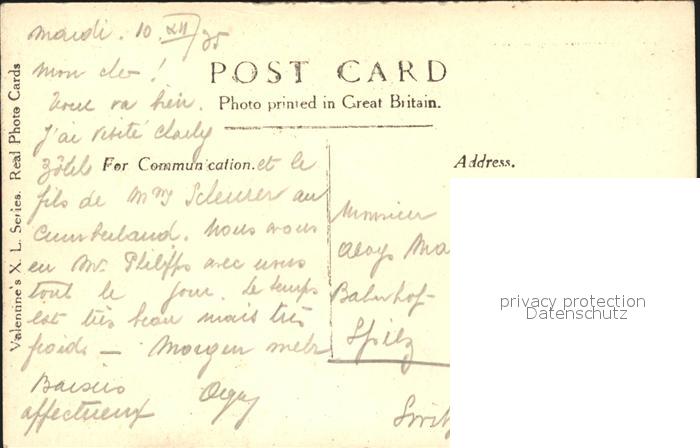 mardi. 10 XII/35
mon cher !
POST CARD
Photo printed in Great Britain.
Valentine's X. L. Series. Real Photo Cards
Tout va bien.
J'ai visité
For Communication.
et le
fils de Mme Scheurer au
Cumberland. Nous avons
eu Mr. Philipps avec nous
tout le jour. Le temps
est très beau mais très
froid — Morgen mehr
Baisers
affectueux
Address.
Monsieur
Bahnhof-
Spiez
privacy protection
Datenschutz